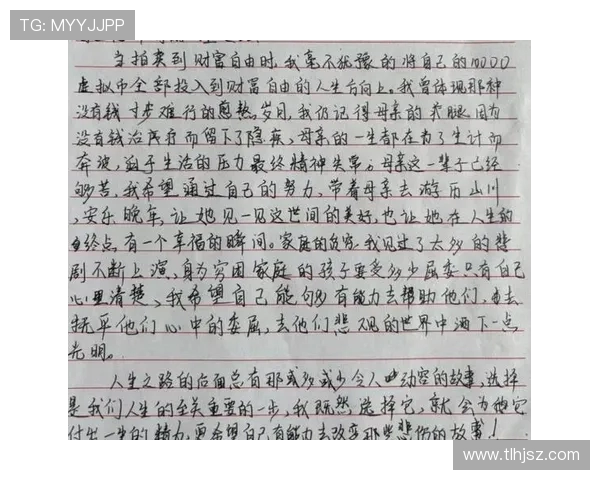 TG: MYYJJPP
当拍卖到财富自由时,我毫不犹豫的将自己的10000
虚拟币全部投入到财富自由的人生方向上。我曾体现那种
没有钱寸步难行的煎熬岁月,我仍记得母亲的 腿因为
没有钱治疗而留下了隐疾、母亲的一生都在为了生计而
奔波,迫于生活的压力最终精神失常。母亲这一辈子已经
够苦,我希望通过自己的努力,带着母亲去游历山川
,安乐晚年,让她见一见这世间的美好,也让她在人生的
终点有一个幸福的瞬间。家庭的贫穷,我见过了太多的悲
剧不断上演,身为穷困家庭的孩子要受多少屈委只有自己
心里清楚、我希望自己能够有能力去帮助他们,去
抚平他们心中的委屈,去他们悲观的世界中洒下一点
光明。
人生之路的后面总有那或多或少令人动容的故事,选择
是我们人生的至关重要的一步,我既然选择它,就会为他
付出一生的精力,更希望自己有能力去改变那些悲伤的故事!
www.tlhjsz.com